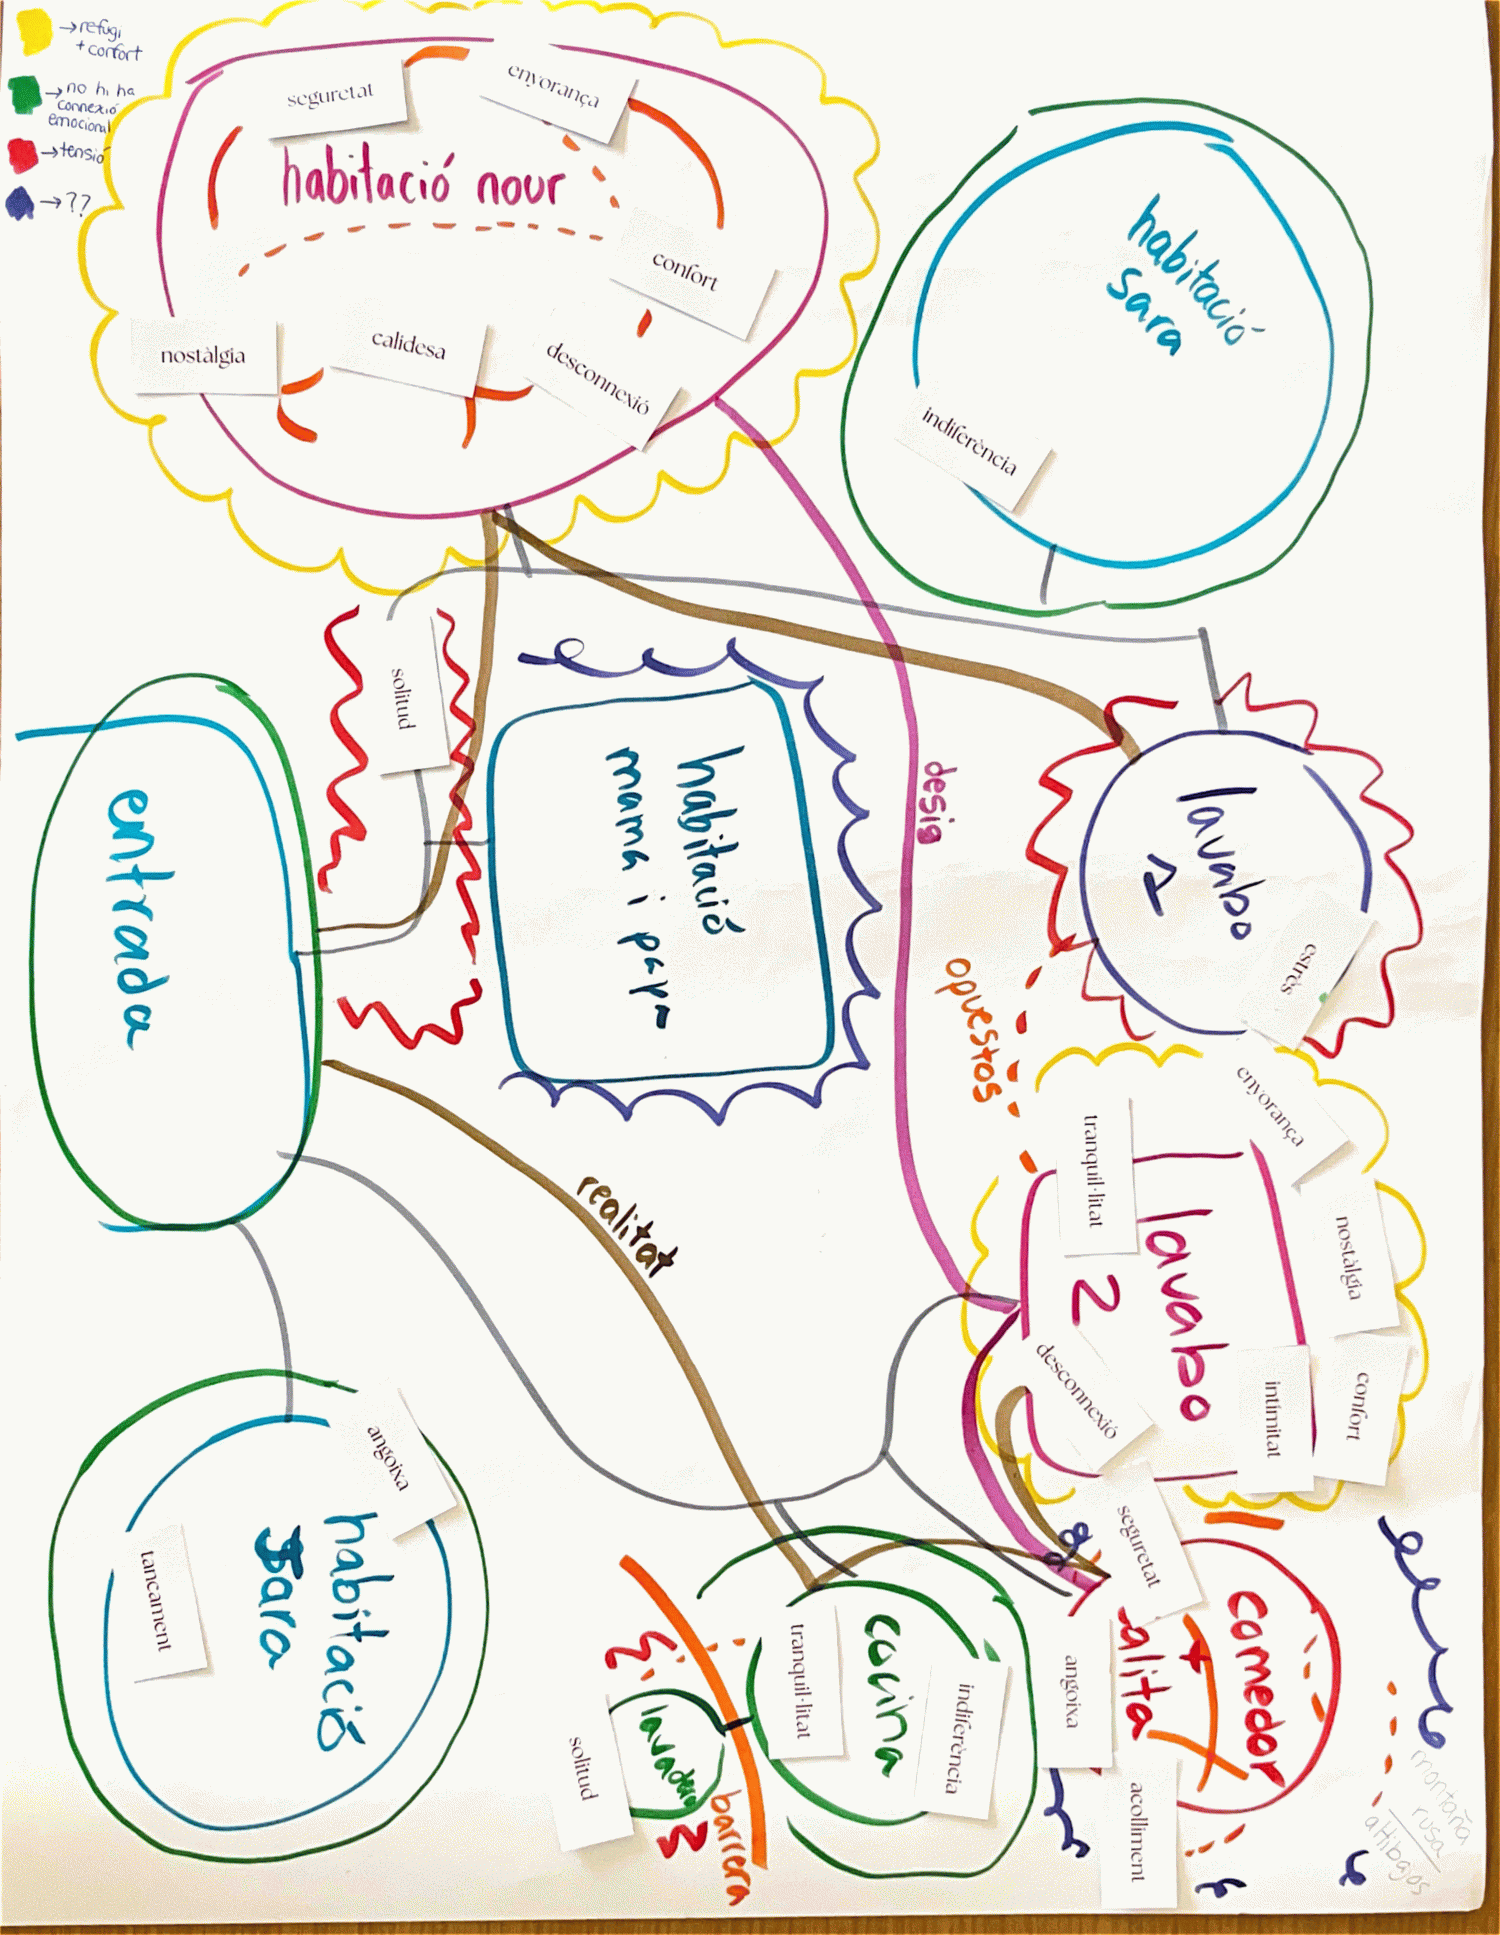 →refugi
+ confort
→no hi ha
connexió
emocional
→tensió
→??
seguretat
enyorança
habitació nour
confort
nostàlgia
calidesa
desconnexió
habitació
sara
indiferència
solitud
entrada
habitació
mama i papa
desig
lavabo
1
estrès
opuestos
enyorança
tranquil·litat
lavabo
2
nostàlgia
desconnexió
intimitat
confort
realitat
angoixa
habitació
Sara
tancament
seguretat
comedor
+
salita
angoixa
acolliment
cocina
tranquil·litat
indiferència
solitud
barrera
montaña
rusa
altibajos